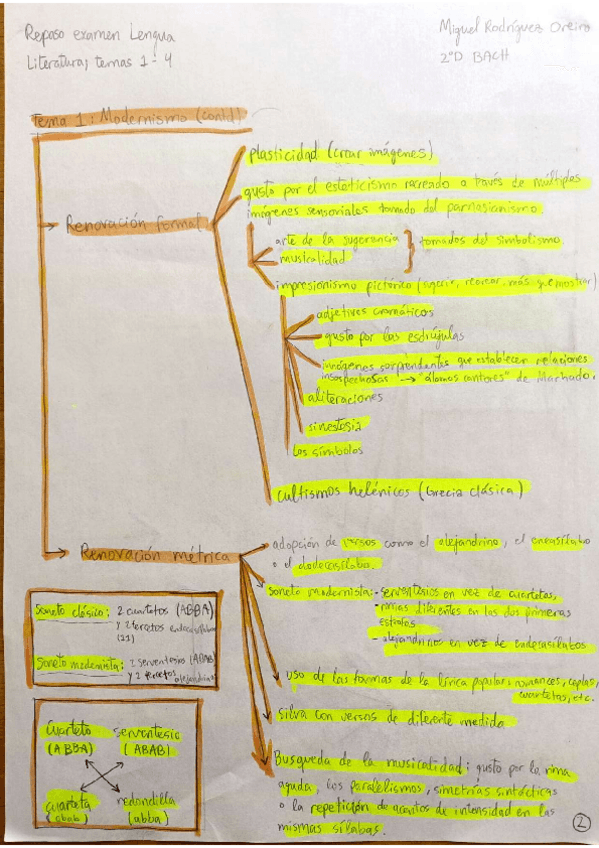 Repaso examen Lengua
Literatura, temas 1 - 4
Miguel Rodríguez Oreiro
2ºD BACH
Tema 1: Modernismo (contd)
Renovación formal
plasticidad (crear imágenes)
gusto por el esteticismo recreado a través de múltiples
imágenes sensoriales tomado del parnasianismo.
arte de la sugerencia
musicalidad
tomados del simbolismo
impresionismo pictórico (sugerir, recrear, más que mostrar)
adjetivos cromáticos
gusto por las esdrújulas
imágenes sorprendentes que establecen relaciones
insospechosas → "álamos cantores" de Machado.
aliteraciones
sinestesia
Los símbolos
cultismos helénicos (Grecia clásica)
Renovación métrica
adopción de versos como el alejandrino, el eneasílabo
o el dodecasílabo.
Soneto modernista: - serventesios en vez de cuartetos,
- rimas diferentes en las dos primeras
estrofas
- alejandrinos en vez de endecasílabos
uso de las formas de la lírica popular: romances, coplas,
cuartetas, etc.
Silva con versos de diferente medida
Búsqueda de la musicalidad: gusto por la rima
aguda, los paralelismos, simetrías sintácticas
o la repetición de acentos de intensidad en las
mismas sílabas.
Soneto clásico: 2 cuartetos (ABBA)
y 2 tercetos endecasílabos
(11)
Soneto modernista: 2 serventesios (ABAB)
y 2 tercetos
alejandrinos
cuarteto
(ABBA)
serventesio
(ABAB)
cuarteta
(abab)
redondilla
(abba)
2